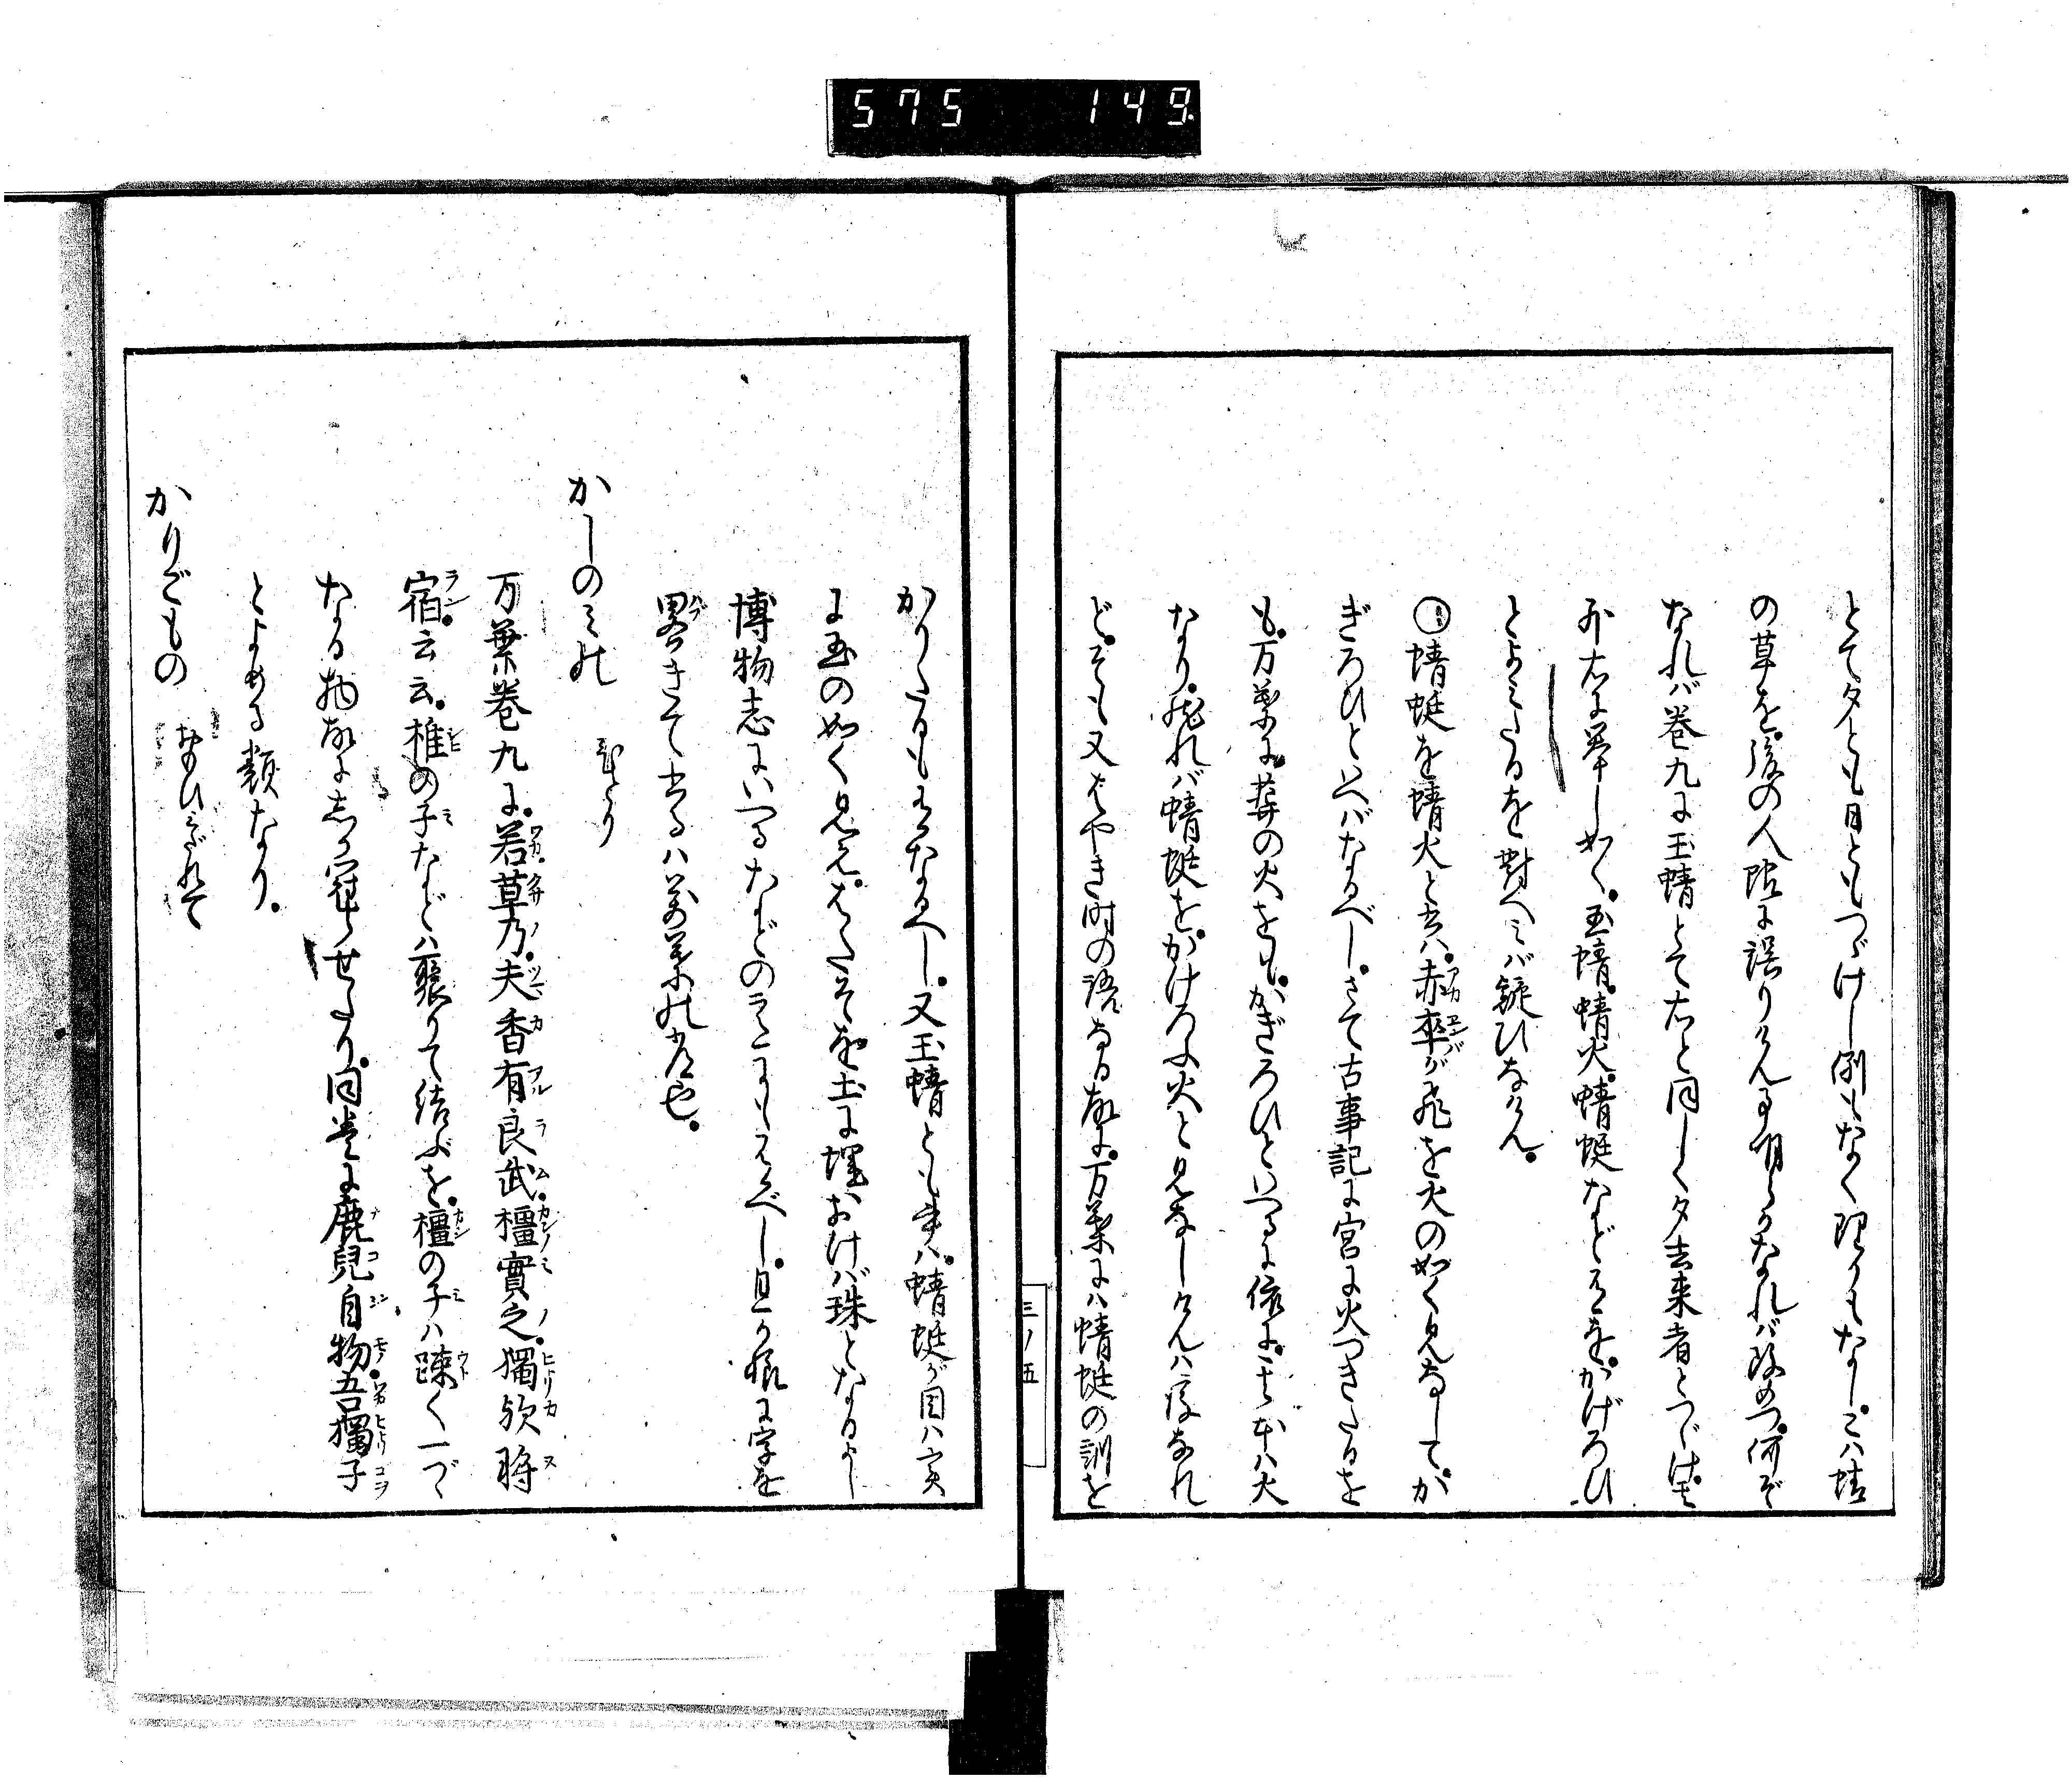 575 149
とて夕とも日ともつゞけし例もなく理りもなし。こハ蜻
の草を。後の人 に誤りけん事明らかなれバ改めつ。何ぞ
なれバ巻九に玉蜻とて右と同しく夕去来者とつゞけ。
右に挙し如く。玉蜻。蜻火。蜻蜓などを かげろひ
とよみたるを對へミバ疑ひなけん。
○蜻蜓を蜻火と云ハ。赤卒が飛を火の如く見なして。か
ぎろひといへバなるべし。さて古事記に宮に火つきたるを
も。万葉に葬の火をも。かぎろひといへるに依に。 本ハ火
なり。然れバ蜻蜓をかけろふ火と見なしけんハ後なれ
ど。そも又はやき時の語なる故に。万葉にハ蜻蜓の訓を
三ノ五
かりたるも有なるべし。又玉蜻とも書ハ。蜻蜓が目ハ実
に玉の如く見え。はたそを土に埋おけバ珠となるよし
博物志にいへるなどの にもあるべし。且かぎに字を
畧きて書るハ万葉の常也。
かしのミの ひとり
万葉巻九に。若草乃。夫香有良武。橿實之。獨欤将
宿。云云。椎の子などハ聚りて結ぶを。橿の子ハ疎く一づゝ
なる物故にしか冠らせたり。同巻に鹿兒自物。吾獨子
とよめる類なり。
かりごもの おもひミだれて